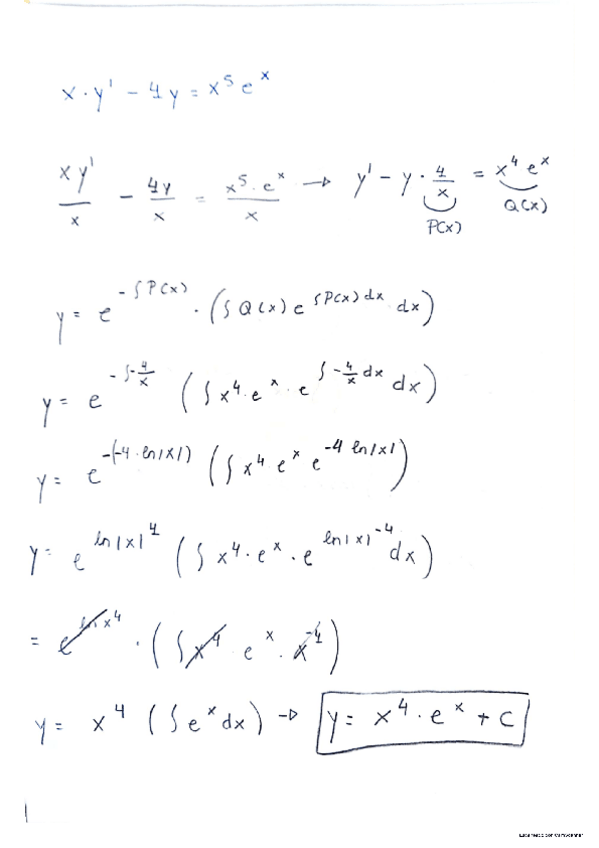 x · y' - 4y = x⁵ e^x
xy'/x - 4y/x = x⁵ · e^x/x → y' - y · 4/x = x⁴ e^x
P(x) Q(x)
y = e^(-∫P(x)) · (∫Q(x) e^(∫P(x) dx) dx)
y = e^(-∫-4/x) (∫x⁴ · e^x · e^(∫-4/x dx) dx)
y = e^(-(-4 · ln|x|)) (∫x⁴ e^x e^(-4 ln|x|))
y = e^(ln|x|⁴) (∫x⁴ · e^x · e^(ln|x|⁻⁴) dx)
= e^(ln x⁴) · (∫x⁴ e^x · x⁻⁴)
y = x⁴ (∫e^x dx) → y = x⁴ · e^x + C